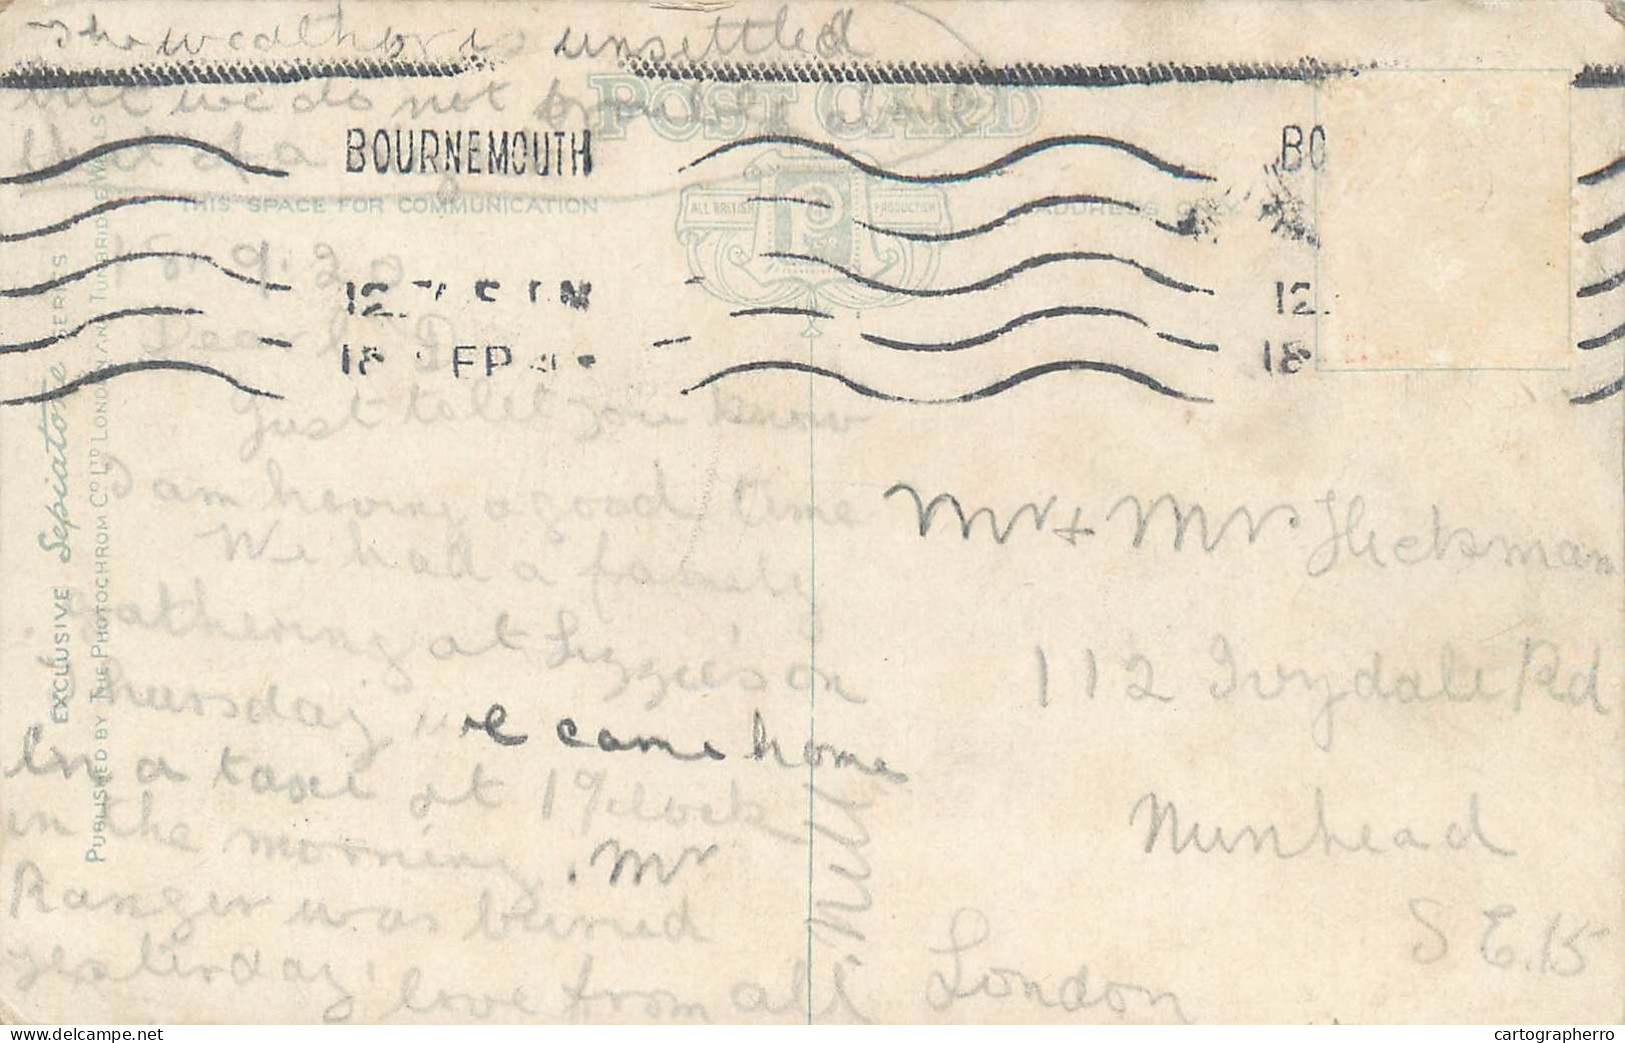 The weather is unsettled
but we do not trouble about
that of a
POST CARD
BOURNEMOUTH
BO
THIS SPACE FOR COMMUNICATION
ALL BRITISH PRODUCTION
ADDRESS ONLY
18.9.20
12
12.
18 SEP
18
Dear
Just to let you know
I am having a good time
We had a family
gathering at Lizzie's on
Thursday we came home
in a taxi at 1 o'clock
in the morning. Mr
Ranger was buried
yesterday.
love from all
Nell
Mr + Mrs Hickman
112 Ivydale Rd
Nunhead
S E.15
London
EXCLUSIVE Sepiatone SERIES
PUBLISHED BY THE PHOTOCHROM CO. LTD LONDON AND TUNBRIDGE WELLS
delcampe.net
cartographerro